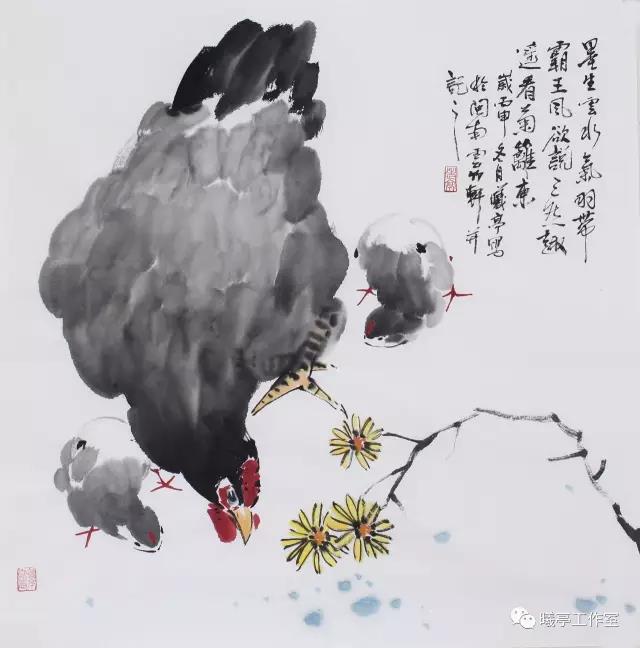 墨生雲水氣羽帶
霸王風欲說三秋趣
遙看菊籬東
歲丙申冬月曦亭寫
於閩南雲竹軒并
記之
曦亭工作室